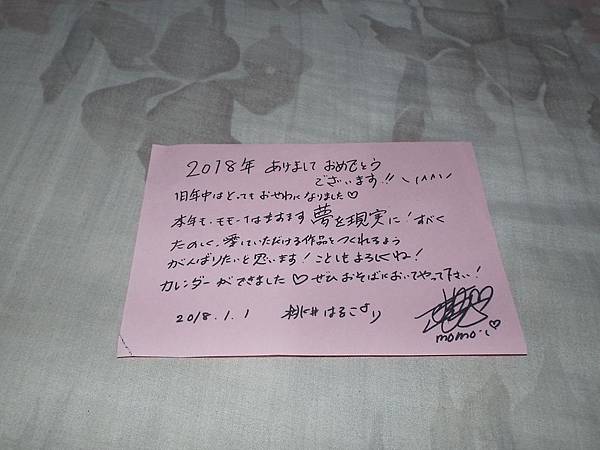 2018年 あけまして おめでとう
ございます!!
旧年中はとってもおせわになりました♡
本年も、モモーイはますます 夢を現実に!すばく
たのしく、愛していただける作品をつくれるよう
がんばりたいと思います!ことしもよろしくね!
カレンダーができました♡ ぜひおそばにおいてやって下さい!
2018.1.1 桃井はるこより
momo-i♡